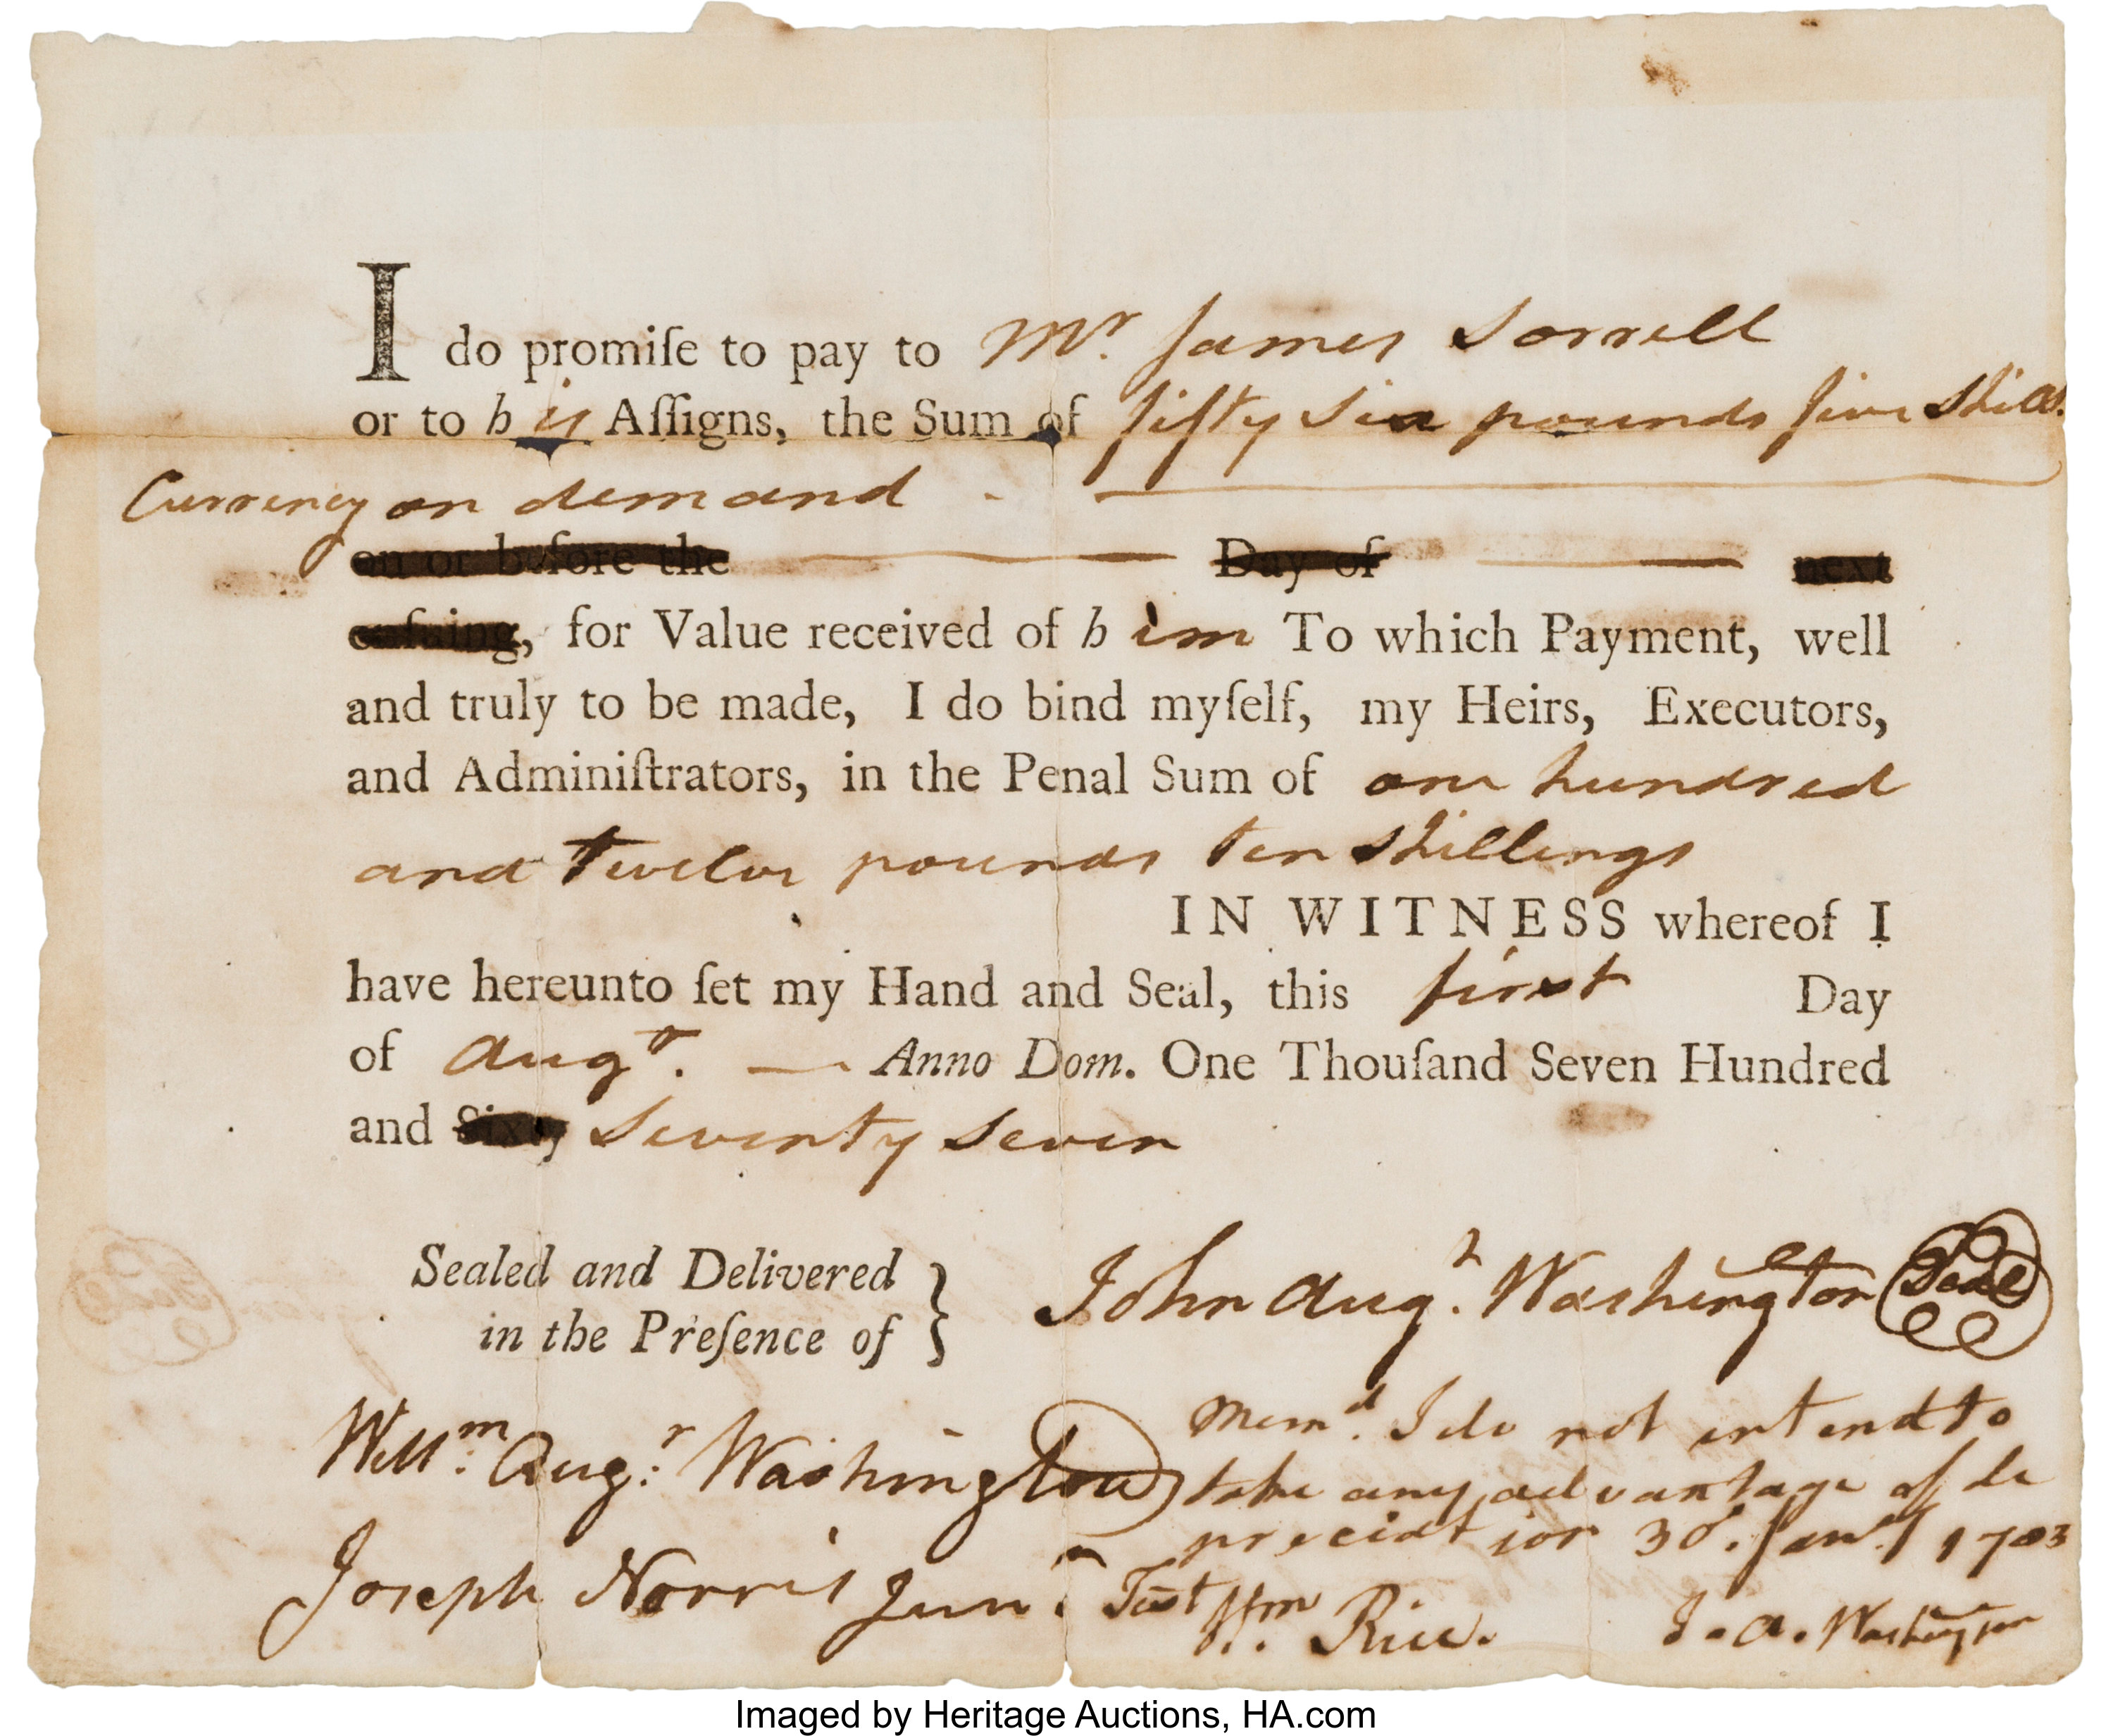 I do promiſe to pay to Mr. James Sorrell
or to his Aſſigns, the Sum of fifty Six pounds five Shills.
Currency on demand -
on or before the Day of next
enſuing, for Value received of him To which Payment, well
and truly to be made, I do bind myſelf, my Heirs, Executors,
and Adminiſtrators, in the Penal Sum of one hundred
and Twelve pounds ten Shillings
IN WITNESS whereof I
have hereunto ſet my Hand and Seal, this first Day
of Augt. — Anno Dom. One Thouſand Seven Hundred
and Sixty Seventy Seven
Sealed and Delivered
in the Preſence of
John Augn. Washington Seal
Willm: Augr: Washington
Joseph Norris Junr.
Memd. I do not intend to
take any advantage of de
preciation 30. Jany 1783
Test Wm. Rice.
J. A. Washington
Imaged by Heritage Auctions, HA.com